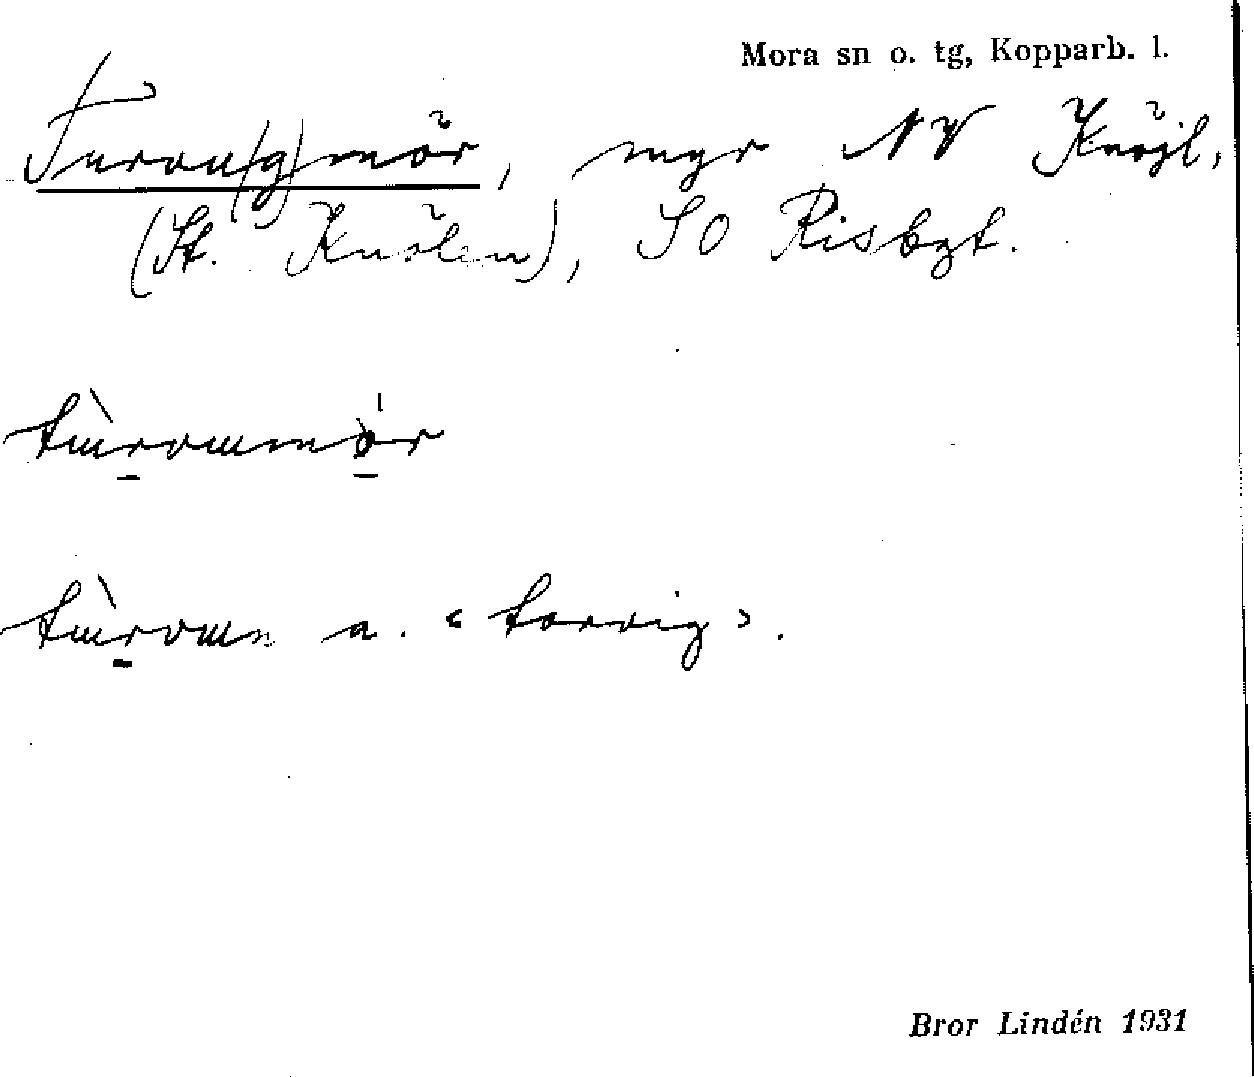 Mora sn o. tg, Kopparb. l.
Turou(g)mör, myr NV Knöjl,
(St. Knölen), SO Risbgt.
tùroummör
tùroun a. «torvig».
Bror Lindén 1931